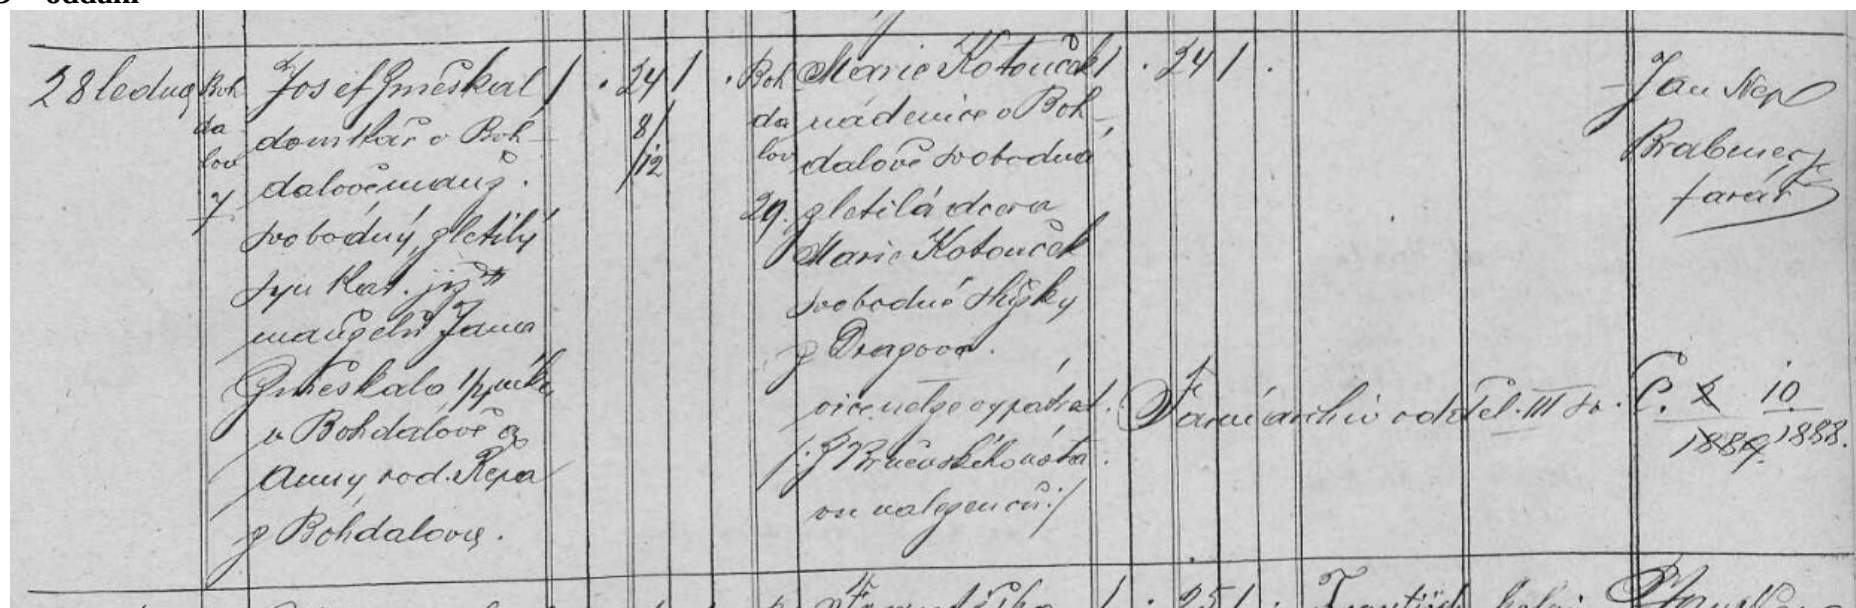 oddaní
28 ledna
Boh
da
lov
7
Josef Zmeškal / . 24 /
8/
/12
domkář v Boh-
dalově, manž.
svobodný, zletilý
syn kat. již †
manželů Jana
Zmeškala 1/2 níka
v Bohdalově a
Anny, rod. Řepa
z Bohdalova.
Boh
da
lov
29.
Marie Kotouček / . 24 / .
nádenice v Boh-
dalově svobodná,
zletilá dcera
Marie Kotouček
svobodné služky
z Dragova.
více nelze vypátrat.
/: z Brněnského ústa
vu nalezenců :/
Farní archiv odděl. III sv. Č. 10
1889 1888.
Jan Nep
Brabenec
farář
Františka / . 25 / .